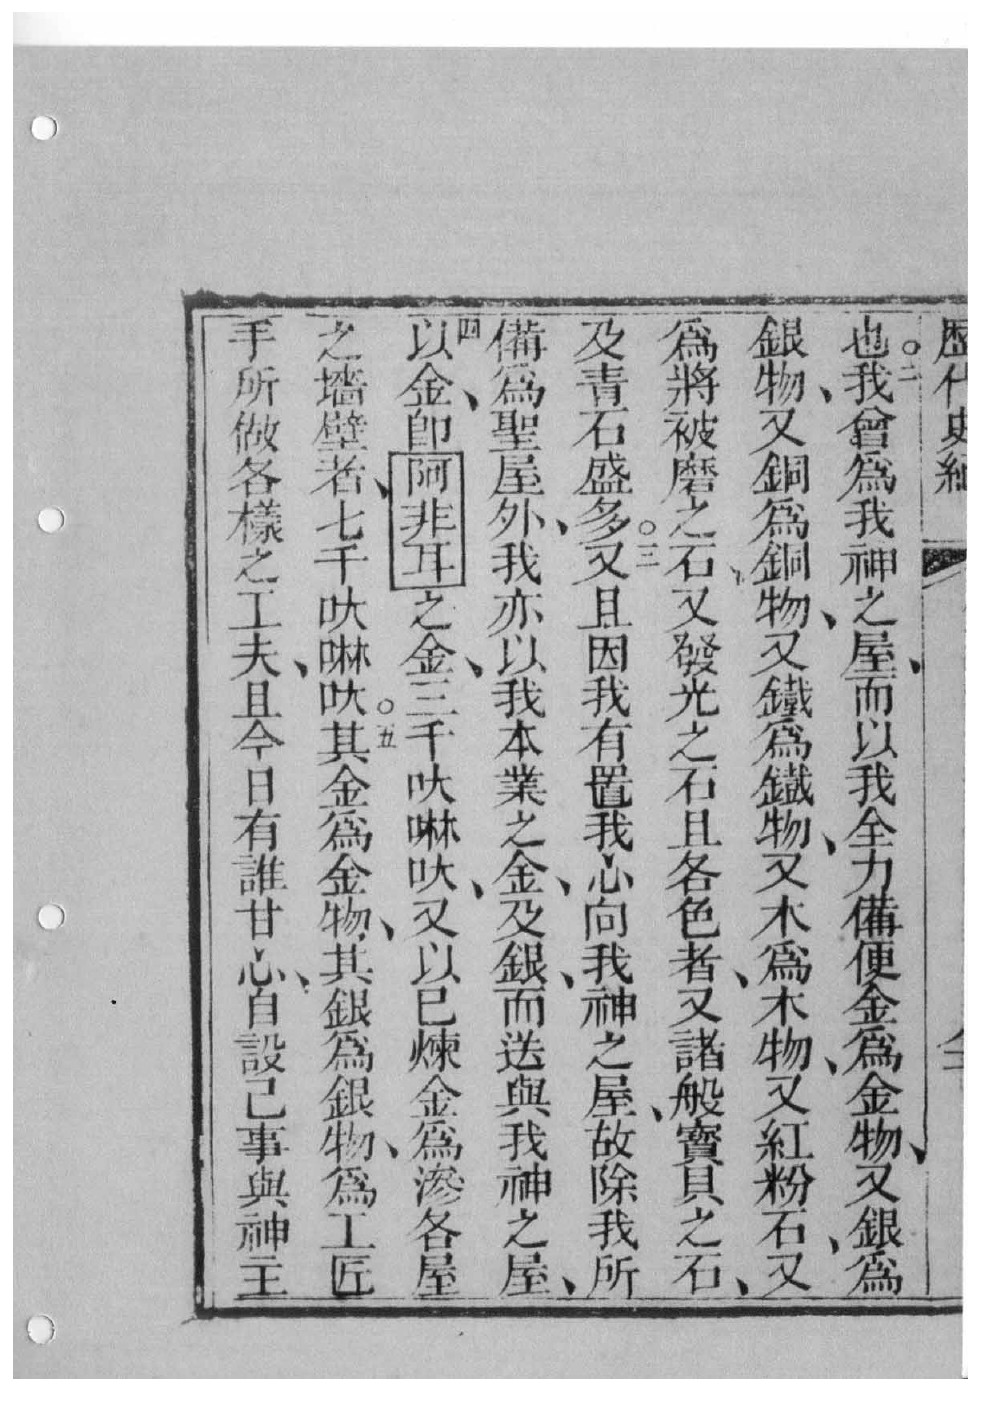 歷代史紀
也○二我曾爲我神之屋、而以我全力備便金爲金物、又銀爲
銀物、又銅爲銅物、又鐵爲鐵物、又木爲木物、又紅粉石、又
爲將被磨之石、又發光之石且各色者、又諸般寶貝之石、
及青石盛多○三又且因我有置我心向我神之屋、故除我所
備爲聖屋外、我亦以我本業之金、及銀、而送與我神之屋、
四以金、卽阿非耳之金、三千吠啉吠、又以已煉金爲滲各屋
之墻壁者、七千吠啉吠○五其金爲金物、其銀爲銀物、爲工匠
手所做各樣之工夫、且今日有誰甘心、自設己事與神主